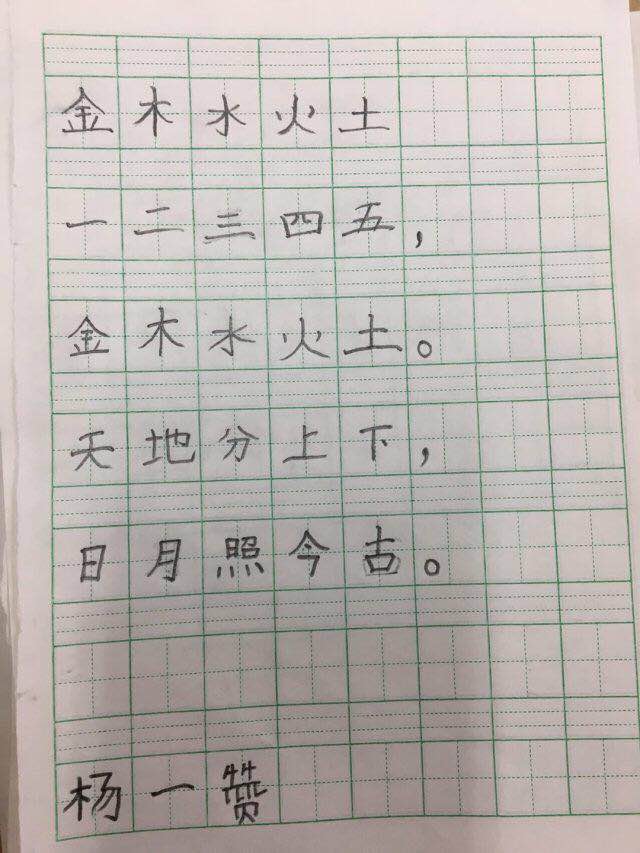 金木水火土
一二三四五，
金木水火土。
天地分上下，
日月照今古。
杨一赞